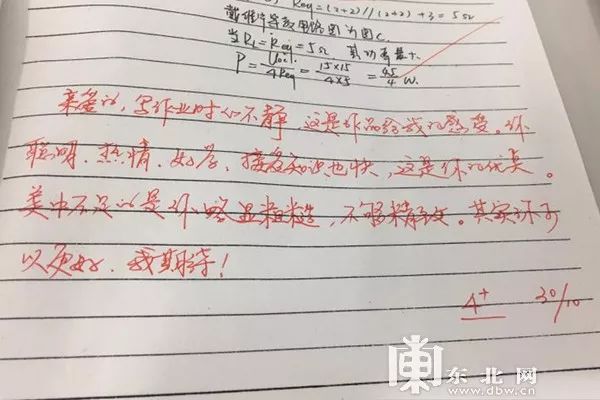 Req=(2+2)//(2+2)+3=5Ω
戴维宁等效电路图为图C.
当RL=Req=5Ω 其功率最大.
P=Uoc²/4Req=15×15/4×5=45/4 W.
亲爱的,写作业时心不静,这是作品给我的感受。你
聪明、热情、好学、接受知识也快,这是你的优点。
美中不足的是你略显粗糙,不够精致。其实你可
以更好,我期待!
4+ 30/10
東北网
www.dbw.cn